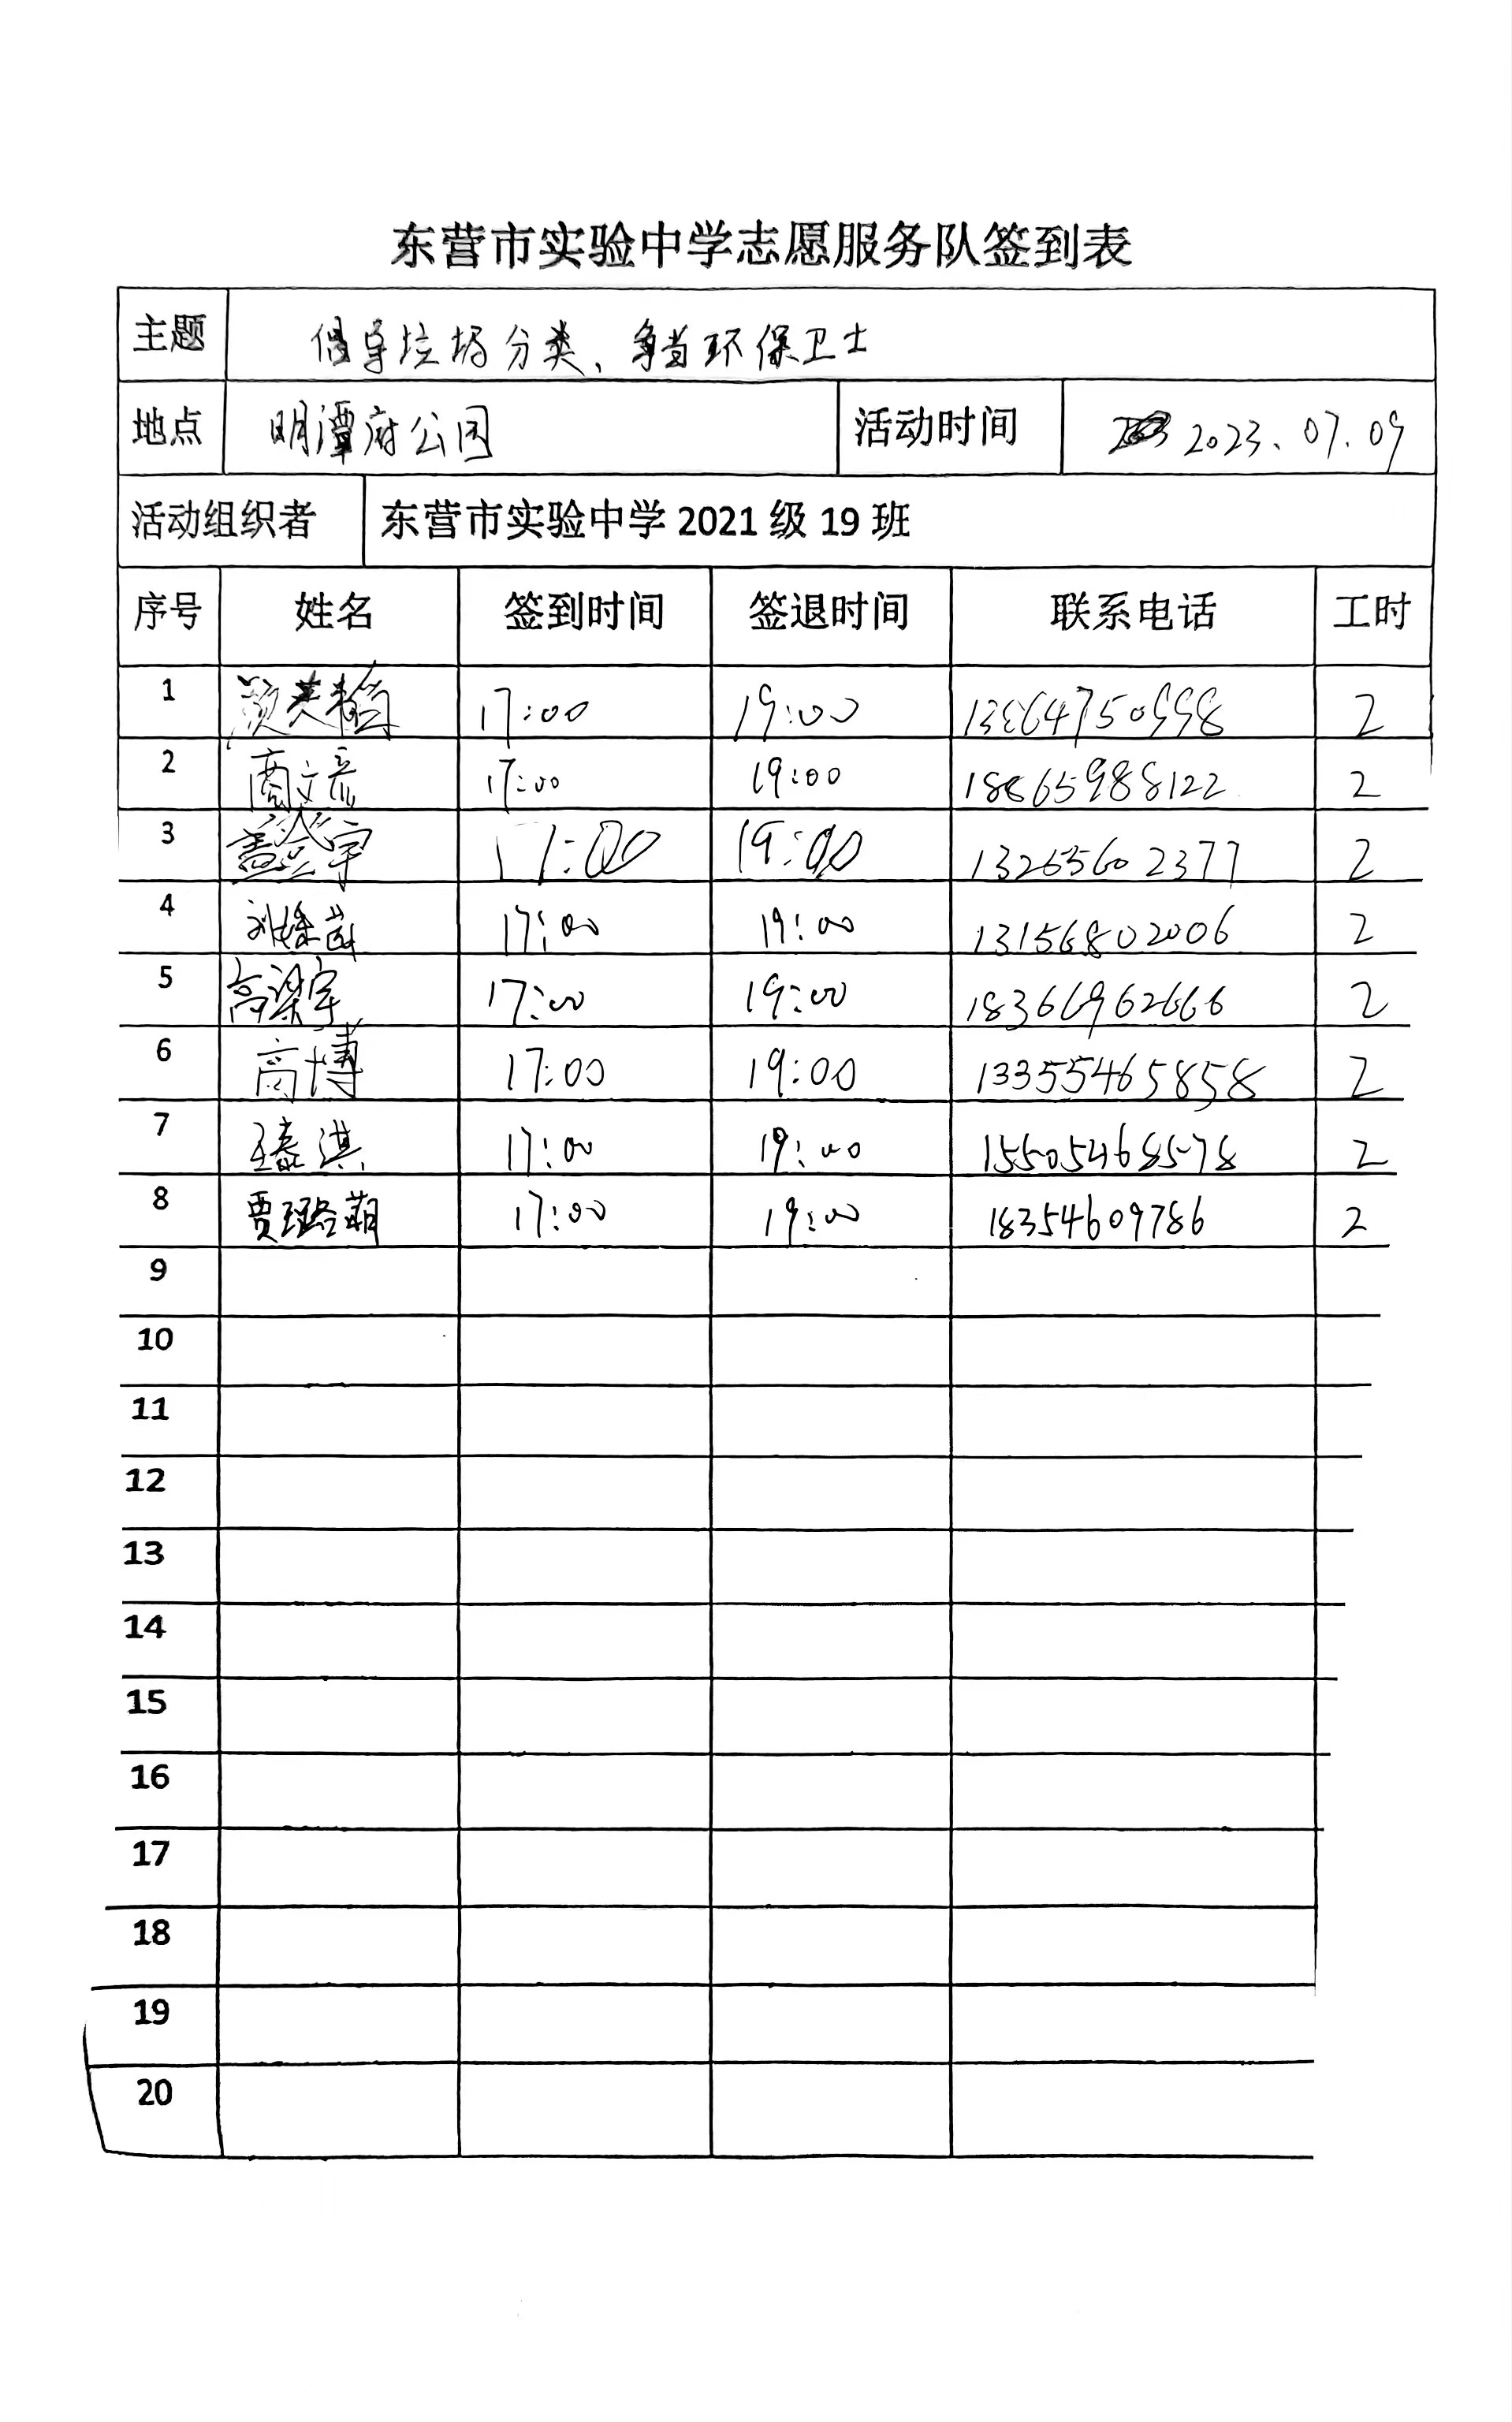 东营市实验中学志愿服务队签到表
主题 倡导垃圾分类、争当环保卫士
地点 明潭府公园 活动时间 2023.07.09
活动组织者 东营市实验中学2021级19班
序号 姓名 签到时间 签退时间 联系电话 工时
1 17:00 19:00 2
2 商文彦 17:00 19:00 18865988122 2
3 盖 宇 17:00 19:00 13265602377 2
4 刘 17:00 19:00 13156802006 2
5 高梁宇 17:00 19:00 18366962666 2
6 商博 17:00 19:00 13355465858 2
7 王泰淇 17:00 19:00 15505468578 2
8 贾璐萌 17:00 19:00 18354609786 2
9
10
11
12
13
14
15
16
17
18
19
20